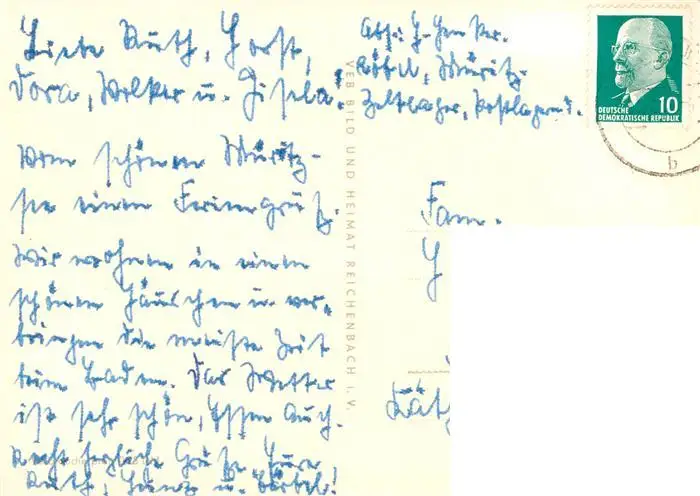 Liebe Ruth, Horst,
Dora, Volker u. Gisela!
Vom schönen Müritz-
see einen Feriengruß.
Wir wohnen in einem
schönen Häuschen u. ver-
bringen die meiste Zeit
beim Baden. Das Wetter
ist sehr schön, Essen auch.
Recht herzliche Grüße Eure
Ruth, Heinz u. Bärbel!
VEB BILD UND HEIMAT REICHENBACH I. V.
Abs:
Röbel, Müritz
Zeltlager, Postlagernd.
DEUTSCHE
DEMOKRATISCHE REPUBLIK
10
b
Fam.